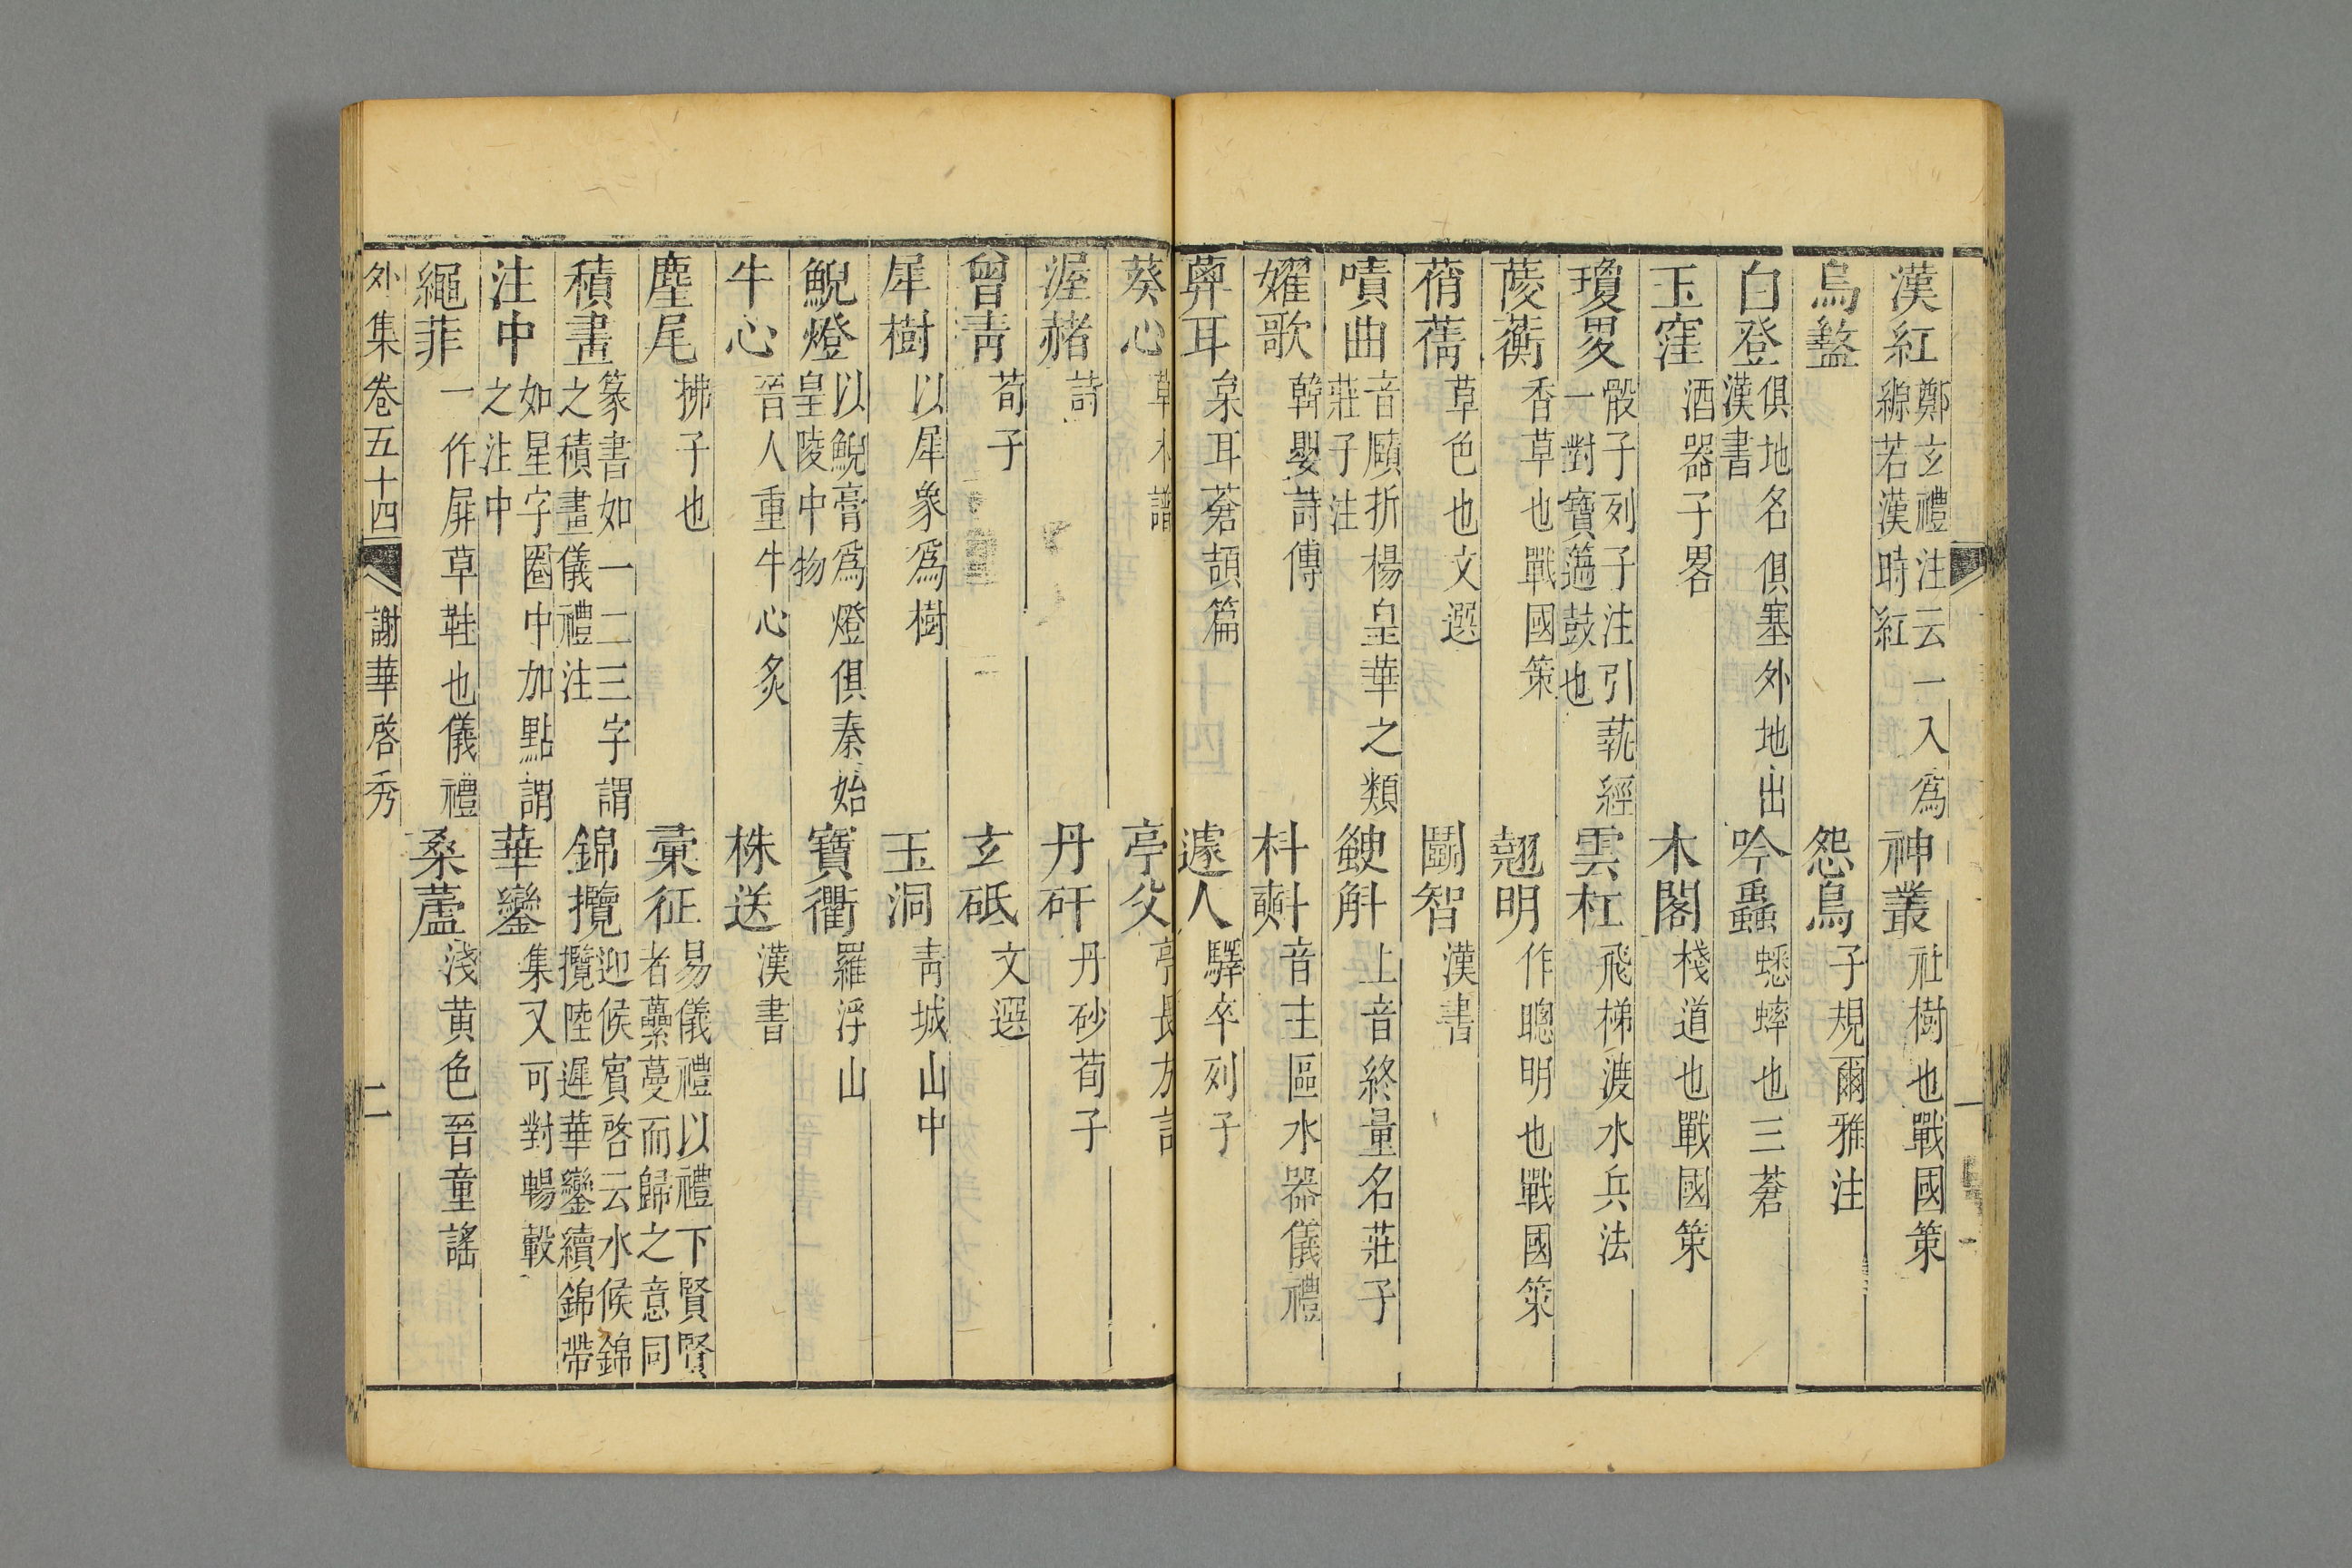 漢紅 鄭玄禮注云一入爲縓若漢時紅 神叢 社樹也戰國策
烏盭 怨鳥 子規爾雅注
白登 俱地名俱塞外地出漢書 吟蟲 蟋蟀也三蒼
玉窪 酒器子畧 木閣 棧道也戰國策
瓊㚆 骰子列子注引蓺經一對寶簻鼓也 雲杠 飛梯渡水兵法
蔆蘅 香草也戰國策 翹明 作聰明也戰國策
蒨蒨 草色也文選 鬬智 漢書
嘳曲 音頋折楊皇華之類莊子注 斔斛 上音終量名莊子
嬥歌 韓嬰詩傳 枓㪺 音主區水器儀禮
萆耳 枲耳蒼頡篇 遽人 驛卒列子
葵心 草木譜 亭父 亭長方言
渥赭 詩 丹矸 丹砂荀子
曾靑 荀子 玄砥 文選
犀樹 以犀象爲樹 玉洞 靑城山中
鯢燈 以鯢膏爲燈俱秦始皇陵中物 寶衢 羅浮山
牛心 晉人重牛心炙 株送 漢書
麈尾 拂子也 彙征 易儀禮以禮下賢賢者虆蔓而歸之意同
積畫 篆書如一二三字謂之積畫儀禮注 錦攬 迎候賓啓云水候錦攬陸遲華鑾續錦帶
注中 如星字圈中加點謂之注中 華鑾 集又可對暢轂
繩菲 一作屏草鞋也儀禮 桑蘆 淺黄色晉童謠
外集卷五十四 謝華啓秀 二